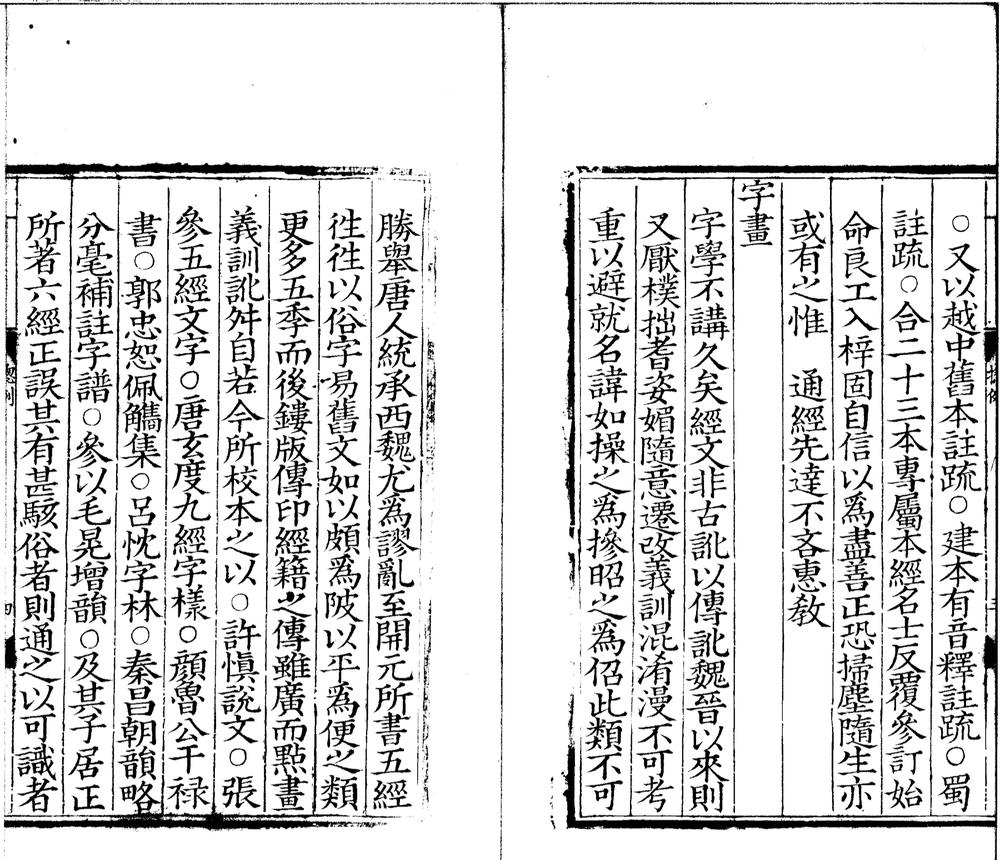 ○又以越中舊本註疏○建本有音釋註疏○蜀
註疏○合二十三本專屬本經名士反覆參訂始
命良工入梓固自信以爲盡善正恐掃塵隨生亦
或有之惟　通經先達不吝惠敎
字畫
字學不講久矣經文非古訛以傳訛魏晉以來則
又厭樸拙耆姿媚隨意遷改義訓混淆漫不可考
重以避就名諱如操之爲摻昭之爲佋此類不可
勝舉唐人統承西魏尤爲謬亂至開元所書五經
徃徃以俗字易舊文如以頗爲陂以平爲便之類
更多五季而後鏤版傳印經籍之傳雖廣而點畫
義訓訛舛自若今所校本之以○許愼說文○張
參五經文字○唐玄度九經字㨾○顔魯公干禄
書○郭忠恕佩觿集○吕忱字林○秦昌朝韻略
分毫補註字譜○參以毛晃增韻○及其子居正
所著六經正誤其有甚駭俗者則通之以可識者
總例
四